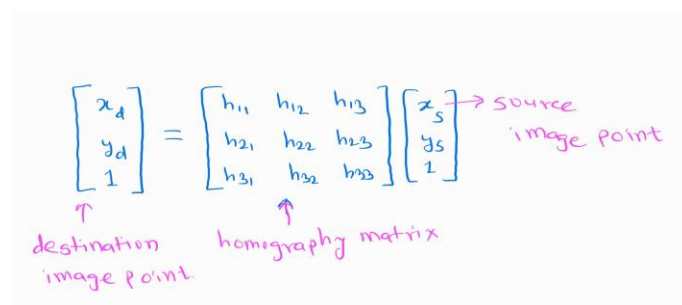 [x_d y_d 1] = [h₁₁ h₁₂ h₁₃; h₂₁ h₂₂ h₂₃; h₃₁ h₃₂ h₃₃] [x_s y_s 1]
→ source
image point
↑
destination
image point.
↑
homography matrix